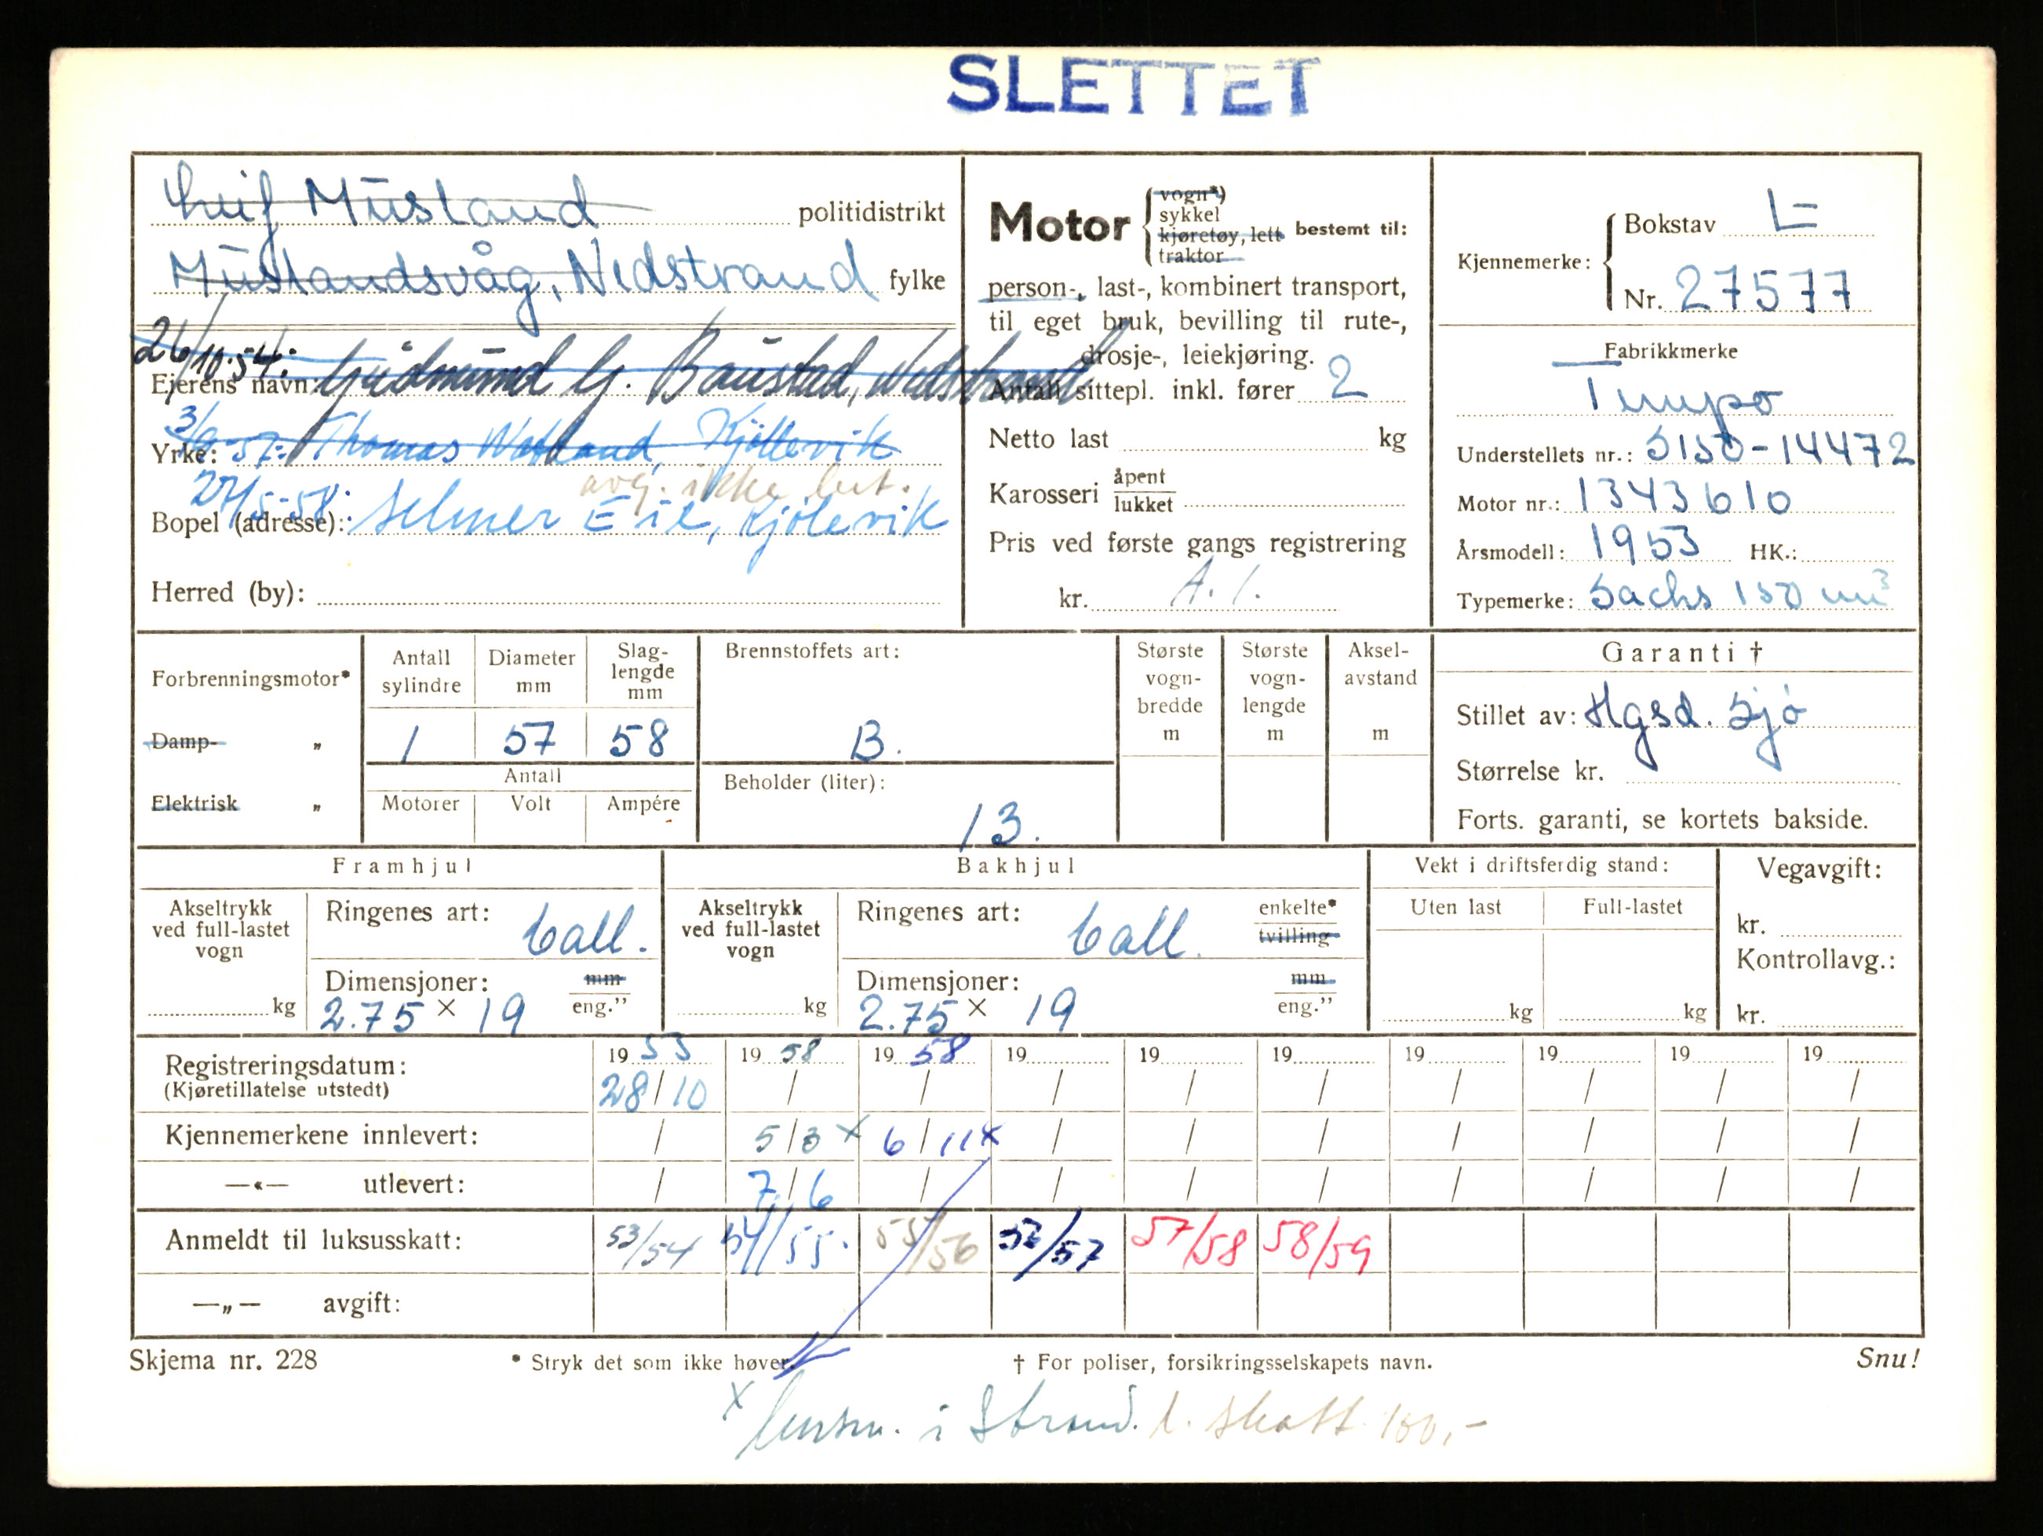 SLETTET
Leif Musland politidistrikt
Muslandsvåg, Nedstrand fylke
26/10.54: Gudmund G. Baustad, Nedstrand
Ejerens navn:
3/6-57: Thomas Natland, Kjöllevik
Yrke:
avg. ikke bet.
27/5-58: Selmer Eie, Kjölevik
Bopel (adresse):
Herred (by):
Motor { vogn*) sykkel kjøretøy, lett traktor bestemt til:
person-, last-, kombinert transport,
til eget bruk, bevilling til rute-,
drosje-, leiekjøring.
Antall sittepl. inkl. fører 2
Netto last kg
Karosseri åpent lukket
Pris ved første gangs registrering
kr. A. 1.
Kjennemerke: { Bokstav L
Nr. 27577
Fabrikkmerke
Tempo
Understellets nr.: 5150-14472
Motor nr.: 1343610
Årsmodell: 1953 HK.:
Typemerke: Sachs 150 cm3
Forbrenningsmotor*
Damp- „
Elektrisk „
Antall sylindre Diameter mm Slag-lengde mm
1 57 58
Antall
Motorer Volt Ampére
Brennstoffets art:
B.
Beholder (liter):
13.
Største vogn-bredde m
Største vogn-lengde m
Aksel-avstand m
Garanti †
Stillet av: Hgsd. Sjø
Størrelse kr.
Forts. garanti, se kortets bakside.
Framhjul
Akseltrykk ved full-lastet vogn kg
Ringenes art: Ball.
Dimensjoner: mm eng.”
2.75 × 19
Bakhjul
Akseltrykk ved full-lastet vogn kg
Ringenes art: Ball. enkelte* tvilling
Dimensjoner: mm eng.”
2.75 × 19
Vekt i driftsferdig stand:
Uten last Full-lastet
kg kg
Vegavgift:
kr.
Kontrollavg.:
kr.
Registreringsdatum: 19 53 19 58 19 58 19 19 19 19 19 19 19
(Kjøretillatelse utstedt) 28/10 / / / / / / / / /
Kjennemerkene innlevert: / 5/3 x 6/11 x / / / / / / /
—«— utlevert: / 7/6 / / / / / / / /
Anmeldt til luksusskatt: 53/54 54/55. 55/56 57/58 58/59
—„— avgift:
Skjema nr. 228 * Stryk det som ikke høver. † For poliser, forsikringsselskapets navn. Snu!
x i Strand. l. skatt 100,-